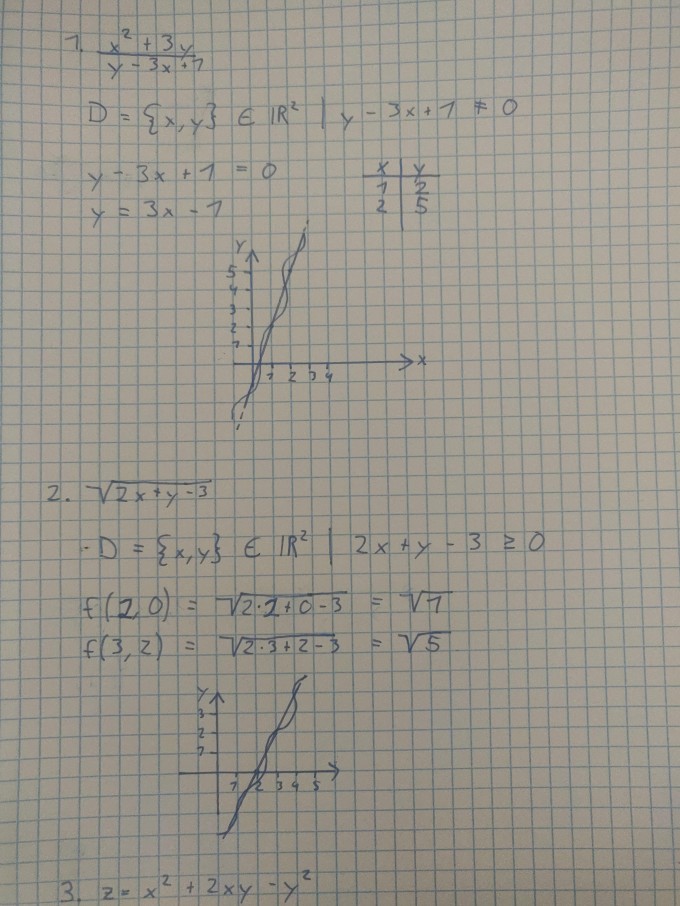 1. x² + 3y / y - 3x + 1
D = {x, y} ∈ ℝ² | y - 3x + 1 ≠ 0
y - 3x + 1 = 0
y = 3x - 1
x | y
1 | 2
2 | 5
y
5
4
3
2
1
1 2 3 4 x
2. √(2x + y - 3)
- D = {x, y} ∈ ℝ² | 2x + y - 3 ≥ 0
f(2,0) = √(2·2 + 0 - 3) = √1
f(3, 2) = √(2·3 + 2 - 3) = √5
y
3
2
1
1 2 3 4 5
3. z = x² + 2xy - y²